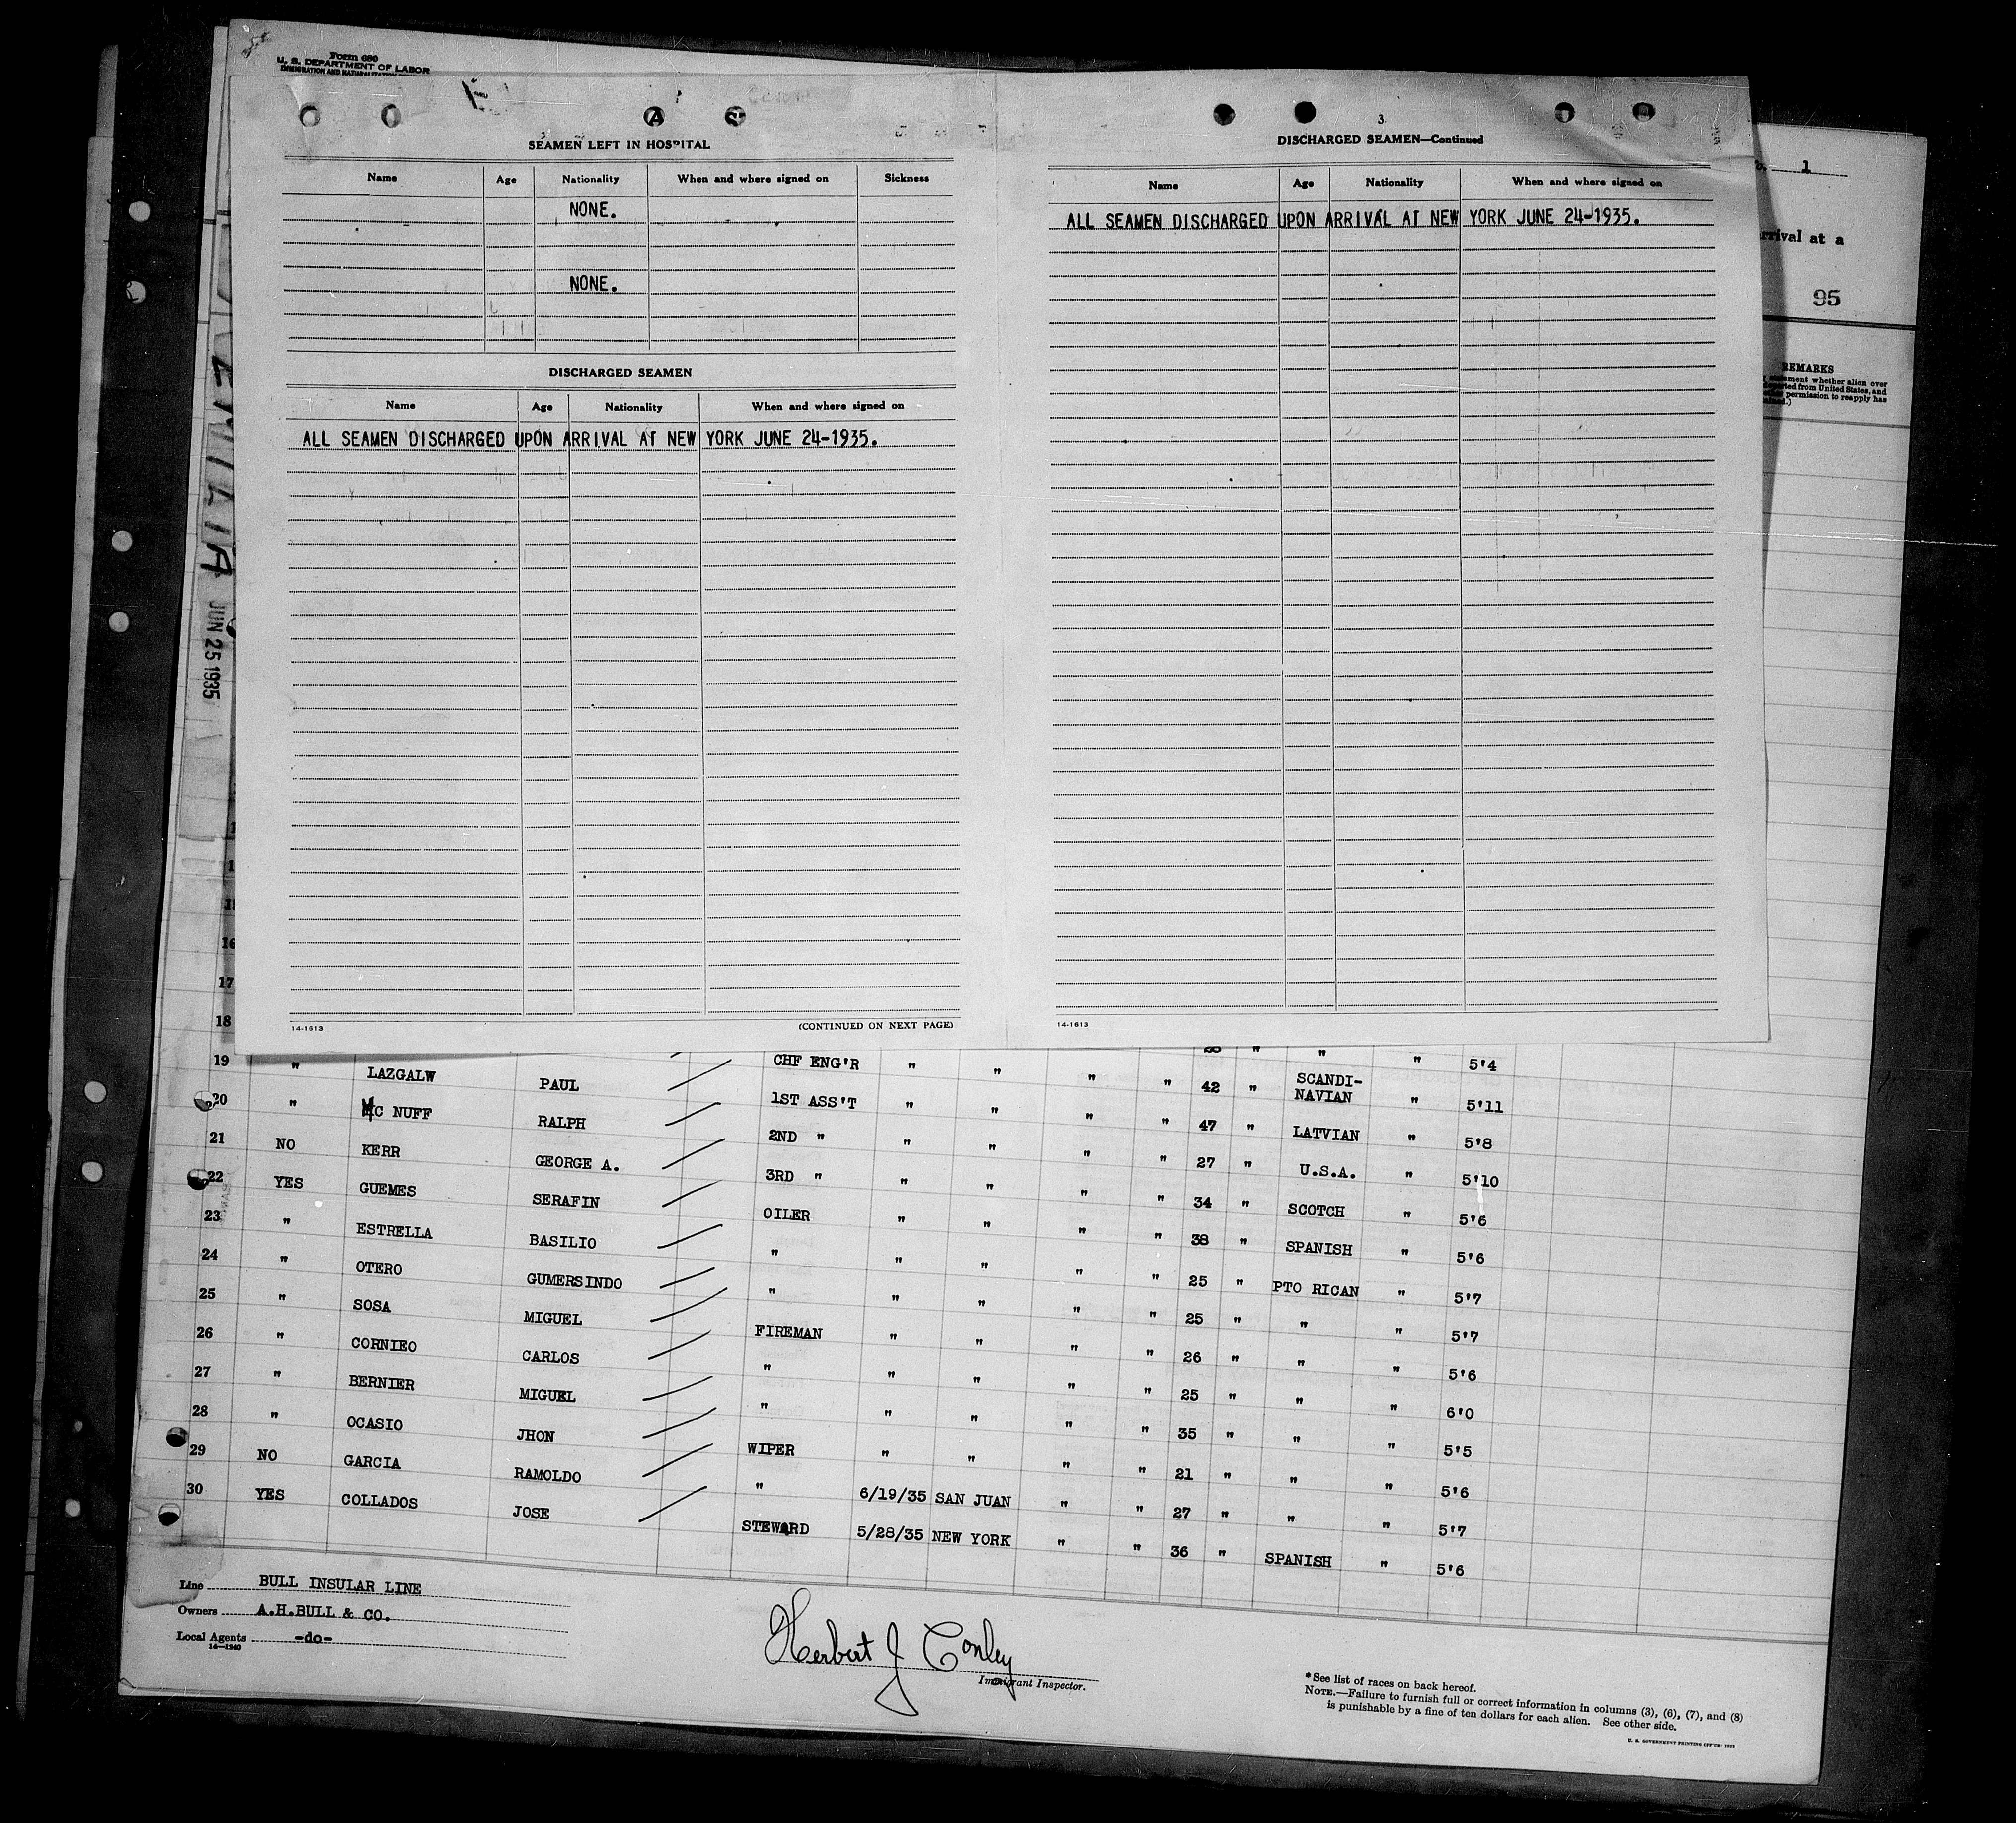 Form 680
U. S. DEPARTMENT OF LABOR
IMMIGRATION AND NATURALIZATION
SEAMEN LEFT IN HOSPITAL
Name Age Nationality When and where signed on Sickness
NONE.
NONE.
DISCHARGED SEAMEN
Name Age Nationality When and where signed on
ALL SEAMEN DISCHARGED UPON ARRIVAL AT NEW YORK JUNE 24-1935.
14-1613 (CONTINUED ON NEXT PAGE)
3
DISCHARGED SEAMEN—Continued
Name Age Nationality When and where signed on
ALL SEAMEN DISCHARGED UPON ARRIVAL AT NEW YORK JUNE 24-1935.
14-1613
1
arrival at a
95
REMARKS
statement whether alien ever
deported from United States, and
permission to reapply has
EMILIA
JUN 25 1935
16
17
18
19 " LAZGALW PAUL CHF ENG'R " " " " 42 " SCANDI-NAVIAN " 5'4
20 " MC NUFF RALPH 1ST ASS'T " " " " 47 " LATVIAN " 5'11
21 NO KERR GEORGE A. 2ND " " " " " 27 " U.S.A. " 5'8
22 YES GUEMES SERAFIN 3RD " " " " " 34 " SCOTCH " 5'10
23 " ESTRELLA BASILIO OILER " " " " 38 " SPANISH " 5'6
24 " OTERO GUMERSINDO " " " " " 25 " PTO RICAN " 5'6
25 " SOSA MIGUEL " " " " " 25 " " " 5'7
26 " CORNIEO CARLOS FIREMAN " " " " 26 " " " 5'7
27 " BERNIER MIGUEL " " " " " 25 " " " 5'6
28 " OCASIO JHON " " " " " 35 " " " 6'0
29 NO GARCIA RAMOLDO WIPER " " " " 21 " " " 5'5
30 YES COLLADOS JOSE " 6/19/35 SAN JUAN " " 27 " " " 5'6
STEWARD 5/28/35 NEW YORK " " 36 " SPANISH " 5'7
5'6
Line BULL INSULAR LINE
Owners A.H.BULL & CO.
Local Agents -do-
14-1240
Herbert J Conley
Immigrant Inspector.
*See list of races on back hereof.
NOTE.—Failure to furnish full or correct information in columns (3), (6), (7), and (8)
is punishable by a fine of ten dollars for each alien. See other side.
U. S. GOVERNMENT PRINTING OFFICE: 1933